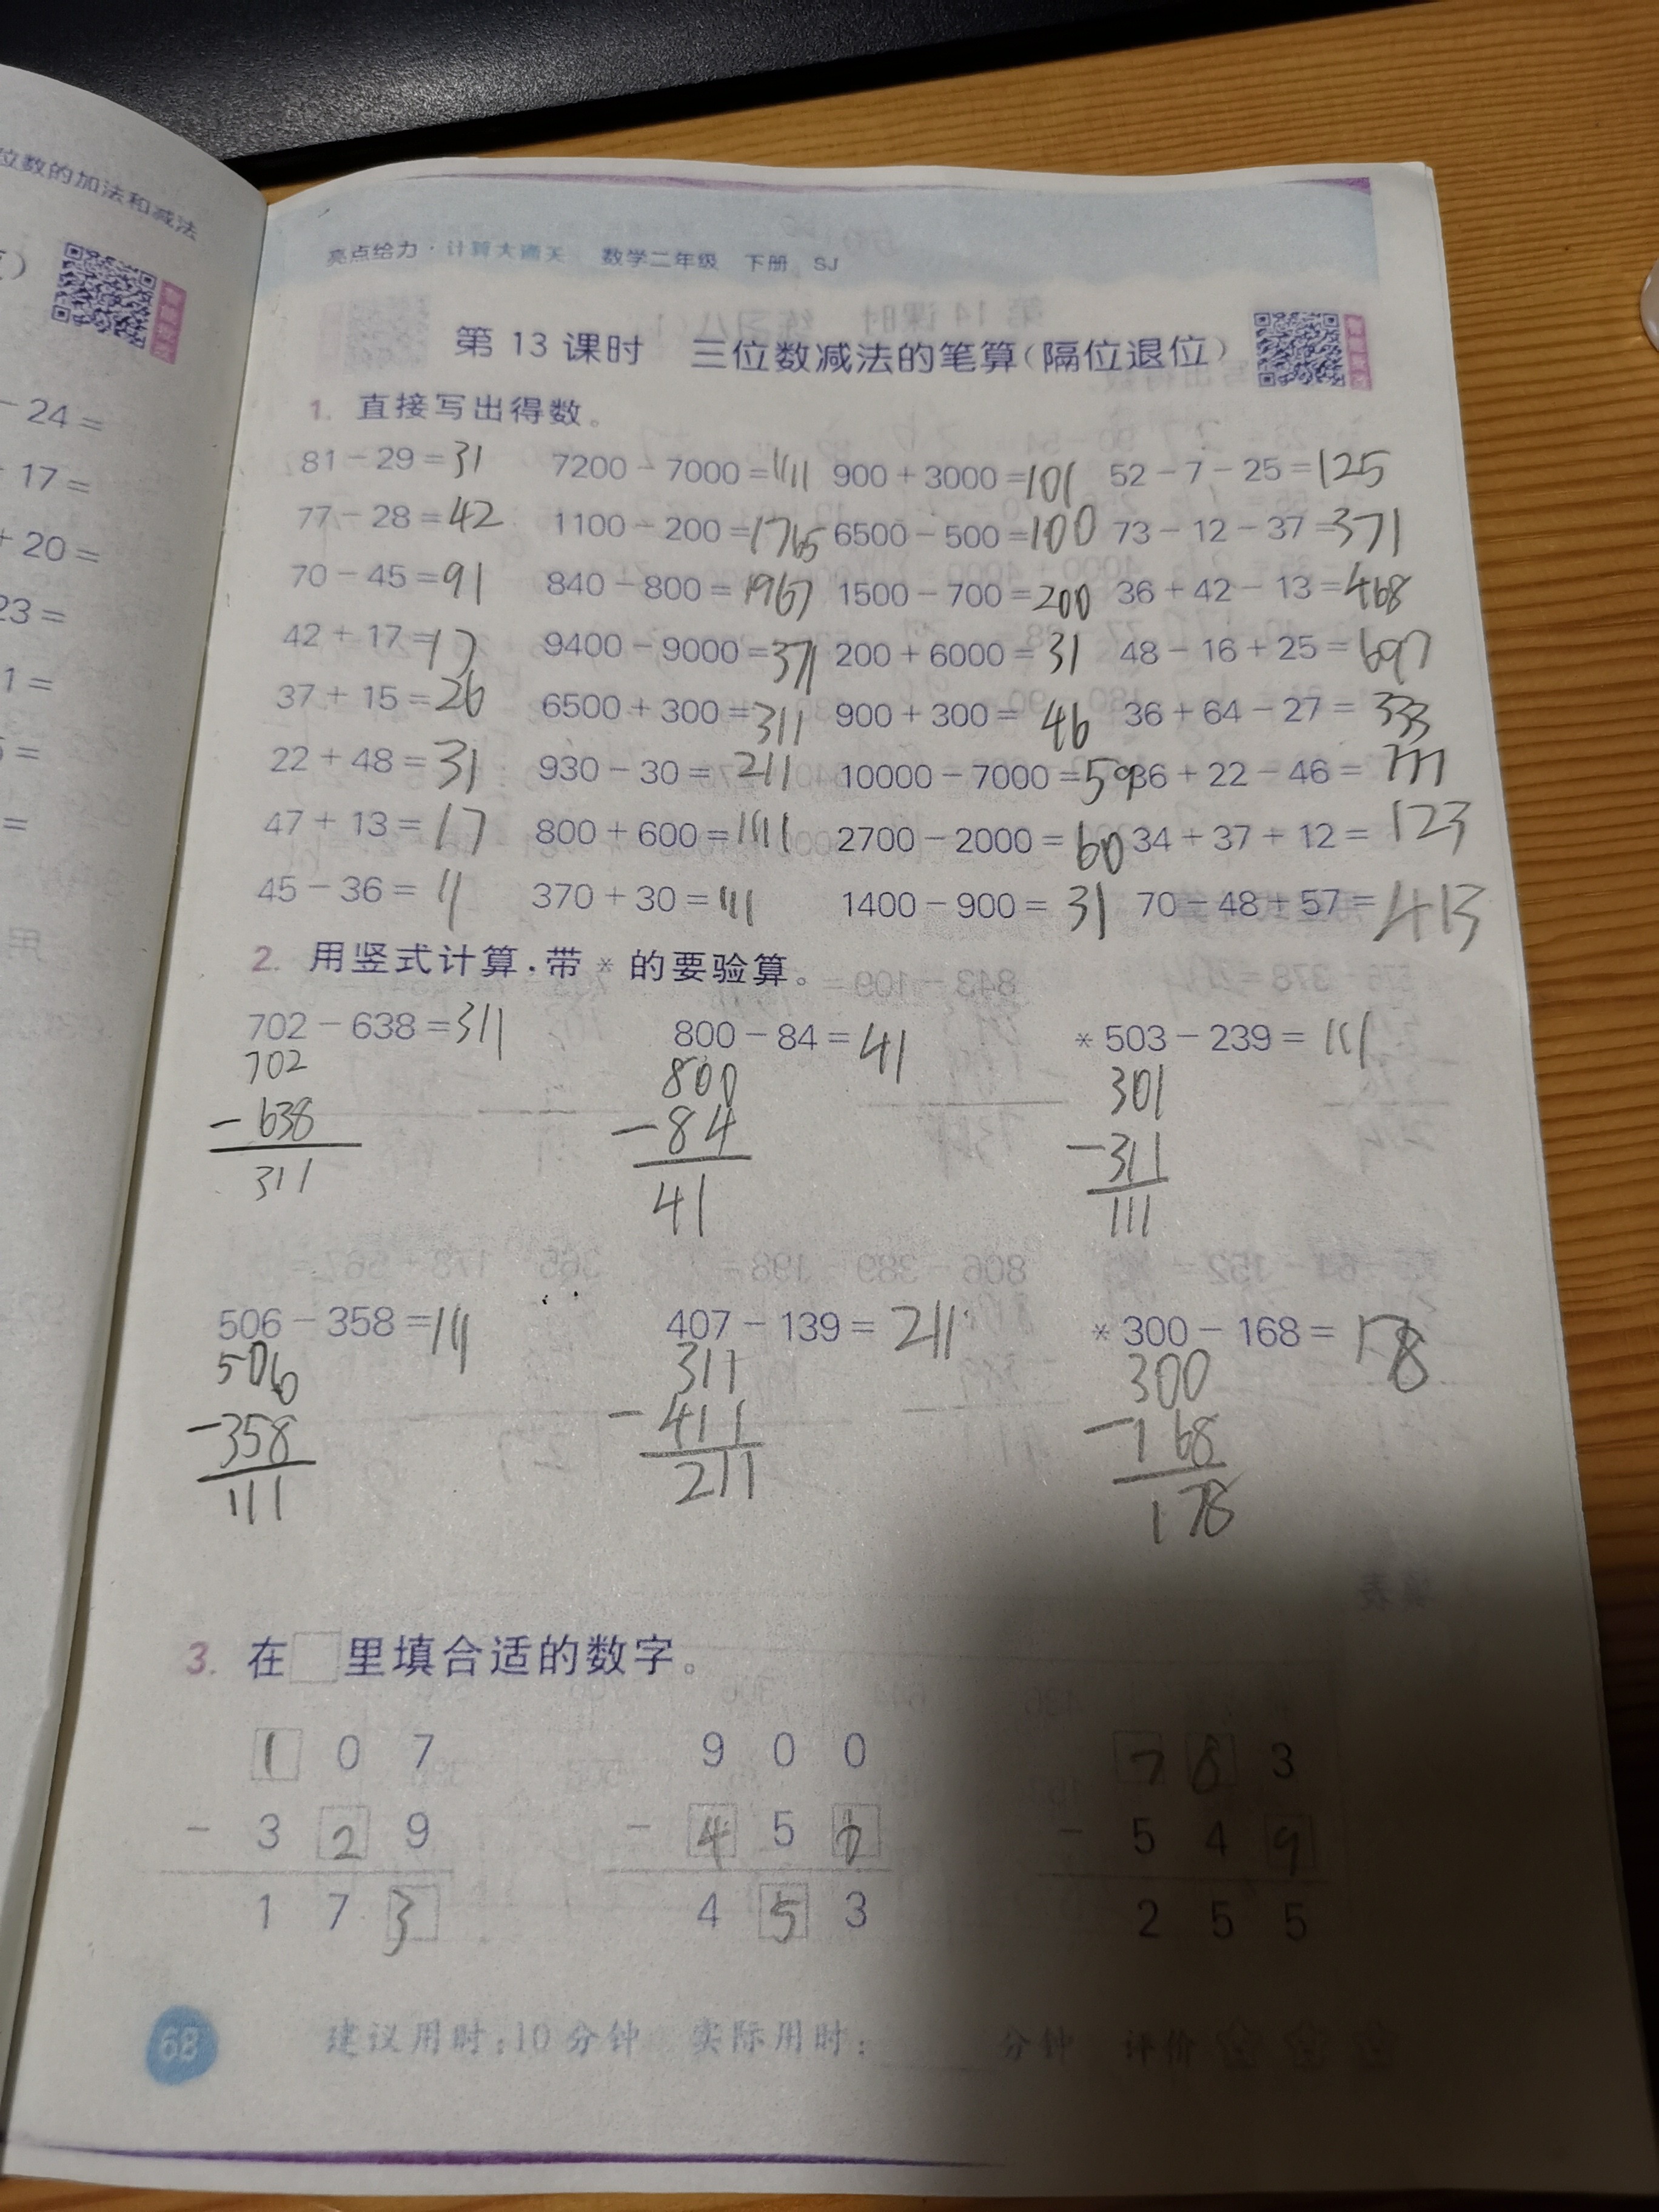 位数的加法和减法
- 24 =
+ 17 =
+ 20 =
23 =
1 =
=
=
亮点给力·计算大通关 数学二年级 下册 SJ
第 13 课时 三位数减法的笔算(隔位退位)
1. 直接写出得数。
81 - 29 = 31 7200 - 7000 = 1111 900 + 3000 = 101 52 - 7 - 25 = 125
77 - 28 = 42 1100 - 200 = 1765 6500 - 500 = 100 73 - 12 - 37 = 371
70 - 45 = 91 840 - 800 = 1967 1500 - 700 = 200 36 + 42 - 13 = 468
42 + 17 = 17 9400 - 9000 = 371 200 + 6000 = 31 48 - 16 + 25 = 697
37 + 15 = 26 6500 + 300 = 311 900 + 300 = 46 36 + 64 - 27 = 333
22 + 48 = 31 930 - 30 = 211 10000 - 7000 = 59 36 + 22 - 46 = 777
47 + 13 = 17 800 + 600 = 1111 2700 - 2000 = 60 34 + 37 + 12 = 123
45 - 36 = 11 370 + 30 = 111 1400 - 900 = 31 70 - 48 + 57 = 413
2. 用竖式计算,带 * 的要验算。
702 - 638 = 311 800 - 84 = 41 * 503 - 239 = 111
702 800 301
- 638 - 84 - 311
311 41 111
506 - 358 = 111 407 - 139 = 211 * 300 - 168 = 178
506 311 300
- 358 - 411 - 168
111 211 178
3. 在□里填合适的数字。
1 0 7 9 0 0 7 8 3
- 3 2 9 - 4 5 - 5 4 9
1 7 3 4 5 3 2 5 5
68 建议用时:10 分钟 实际用时: 分钟 评价